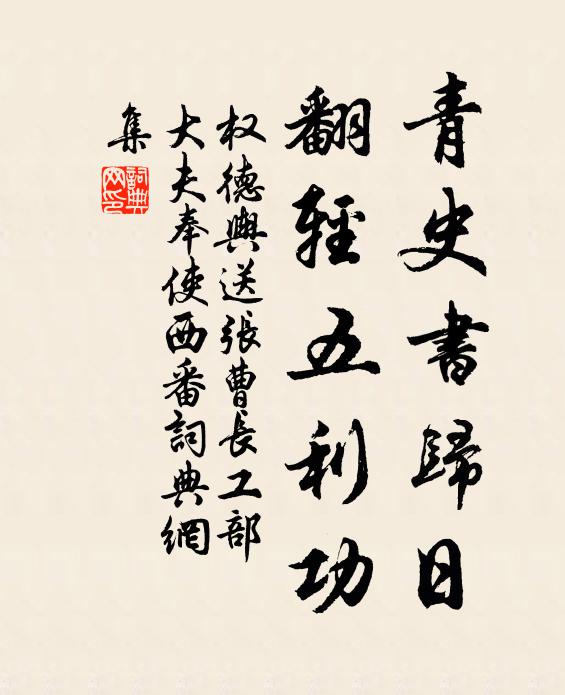 青史書歸日
翻輕五利功
权德輿送張曹長工部
大夫奉使西番詞典網
集
詞典網印